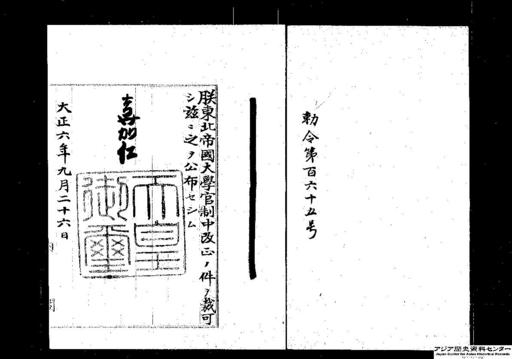 勅令第百六十五号
朕東北帝國大學官制中改正ノ件ヲ裁可
シ茲ニ之ヲ公布セシム
嘉仁
天皇
御璽
大正六年九月二十六日
内閣
アジア歴史資料センター
Japan Center for Asian Historical Records